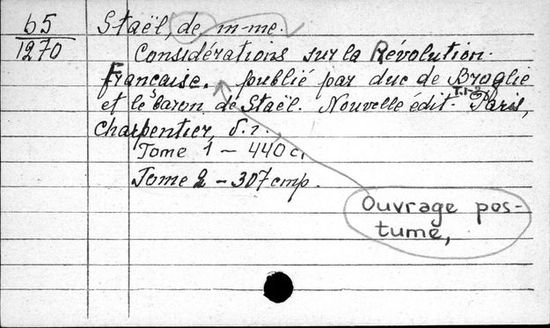 65
1270
Staël, de m-me.
Considérations sur la Révolution
Française. publié par duc de Broglie
et le baron de Staël. Nouvelle édit. T.1-2 Paris,
Charpentier, s. a.
Tome 1 – 440 c.
Tome 2 – 307 cmp.
Ouvrage pos-
tume,